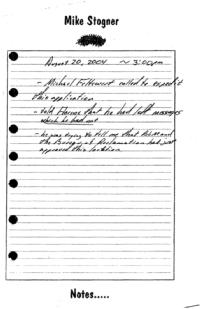 Mike Stogner
August 20, 2004 ~ 3:00pm
- Michael Feldewert called to expedite
this application
- told Florene that he had left messages
which he had not
- he was trying to tell me that and
the Bureau of Reclamation had just
approved this location
Notes.....